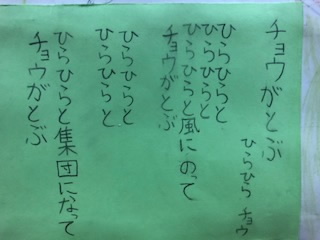 チョウがとぶ
ひらひら チョウ
ひらひらと
ひらひらと
ひらひらと風にのって
チョウがとぶ
ひらひらと
ひらひらと
ひらひらと集団になって
チョウがとぶ